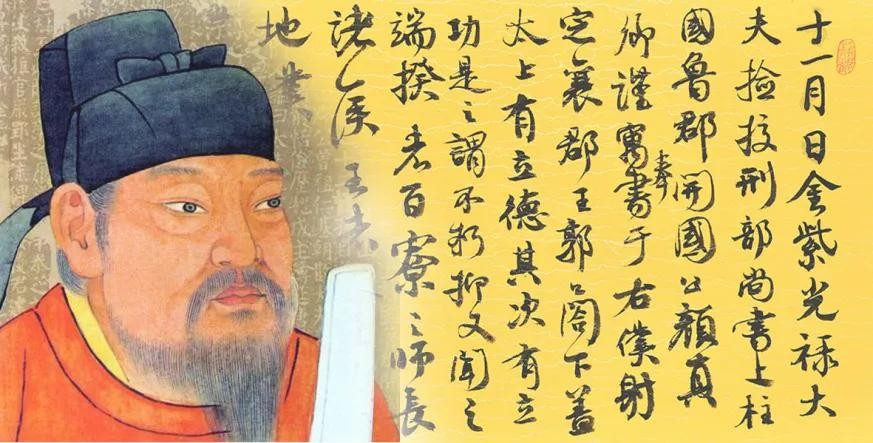 十一月日金紫光祿大
夫捡挍刑部尚書上柱
國魯郡開國公顏真
卿謹奉寓書于右僕射
定襄郡王郭公閤下蓋
太上有立德其次有立
功是之謂不朽抑又聞之
端揆者百寮之師長
諸侯王者
地業